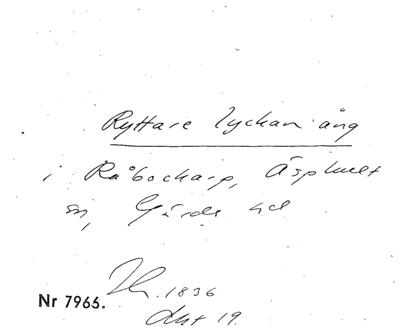 Ryttare lyckan äng
i Råbocharp, Äsphult
sn, Gärds hd
Nr 7965.
1836
Akt 19.